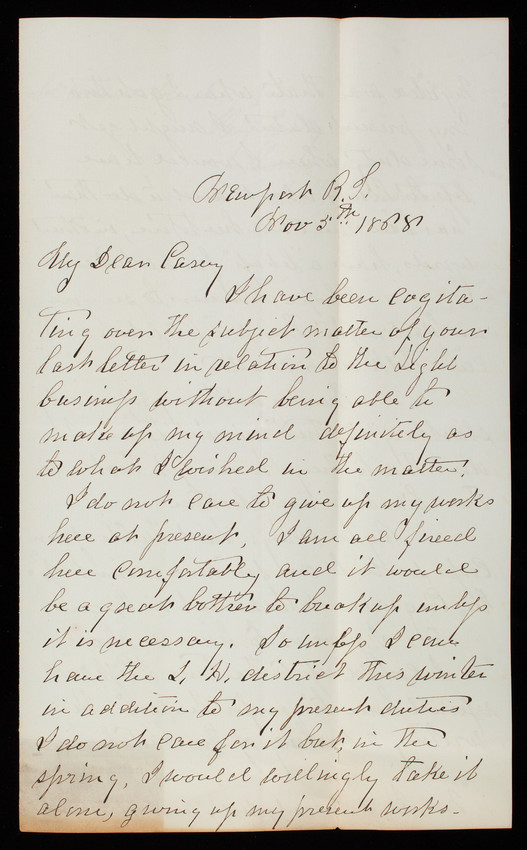 Newport R.I.
Nov 5th 1868
My Dear Casey
I have been cogita-
ting over the subject matter of your
last letter in relation to the Light
business without being able to
make up my mind definitely as
to what I wished in the matter.
I do not care to give up my works
here at present, I am all fixed
here comfortably and it would
be a great bother to break up unless
it is necessary. So unless I can
have the L. H. district this winter
in addition to my present duties
I do not care for it but, in the
spring, I would willingly take it
alone, giving up my present works-